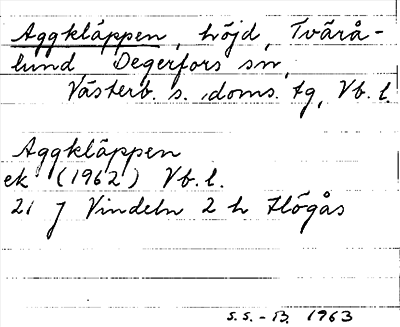 Aggkläppen, höjd, Tvärå-
lund Degerfors sn,
Västerb. s. doms. tg, Vb. l.
Aggkläppen
ek (1962) Vb. l.
21 J Vindeln 2 h Högås
S.S.-B. 1963